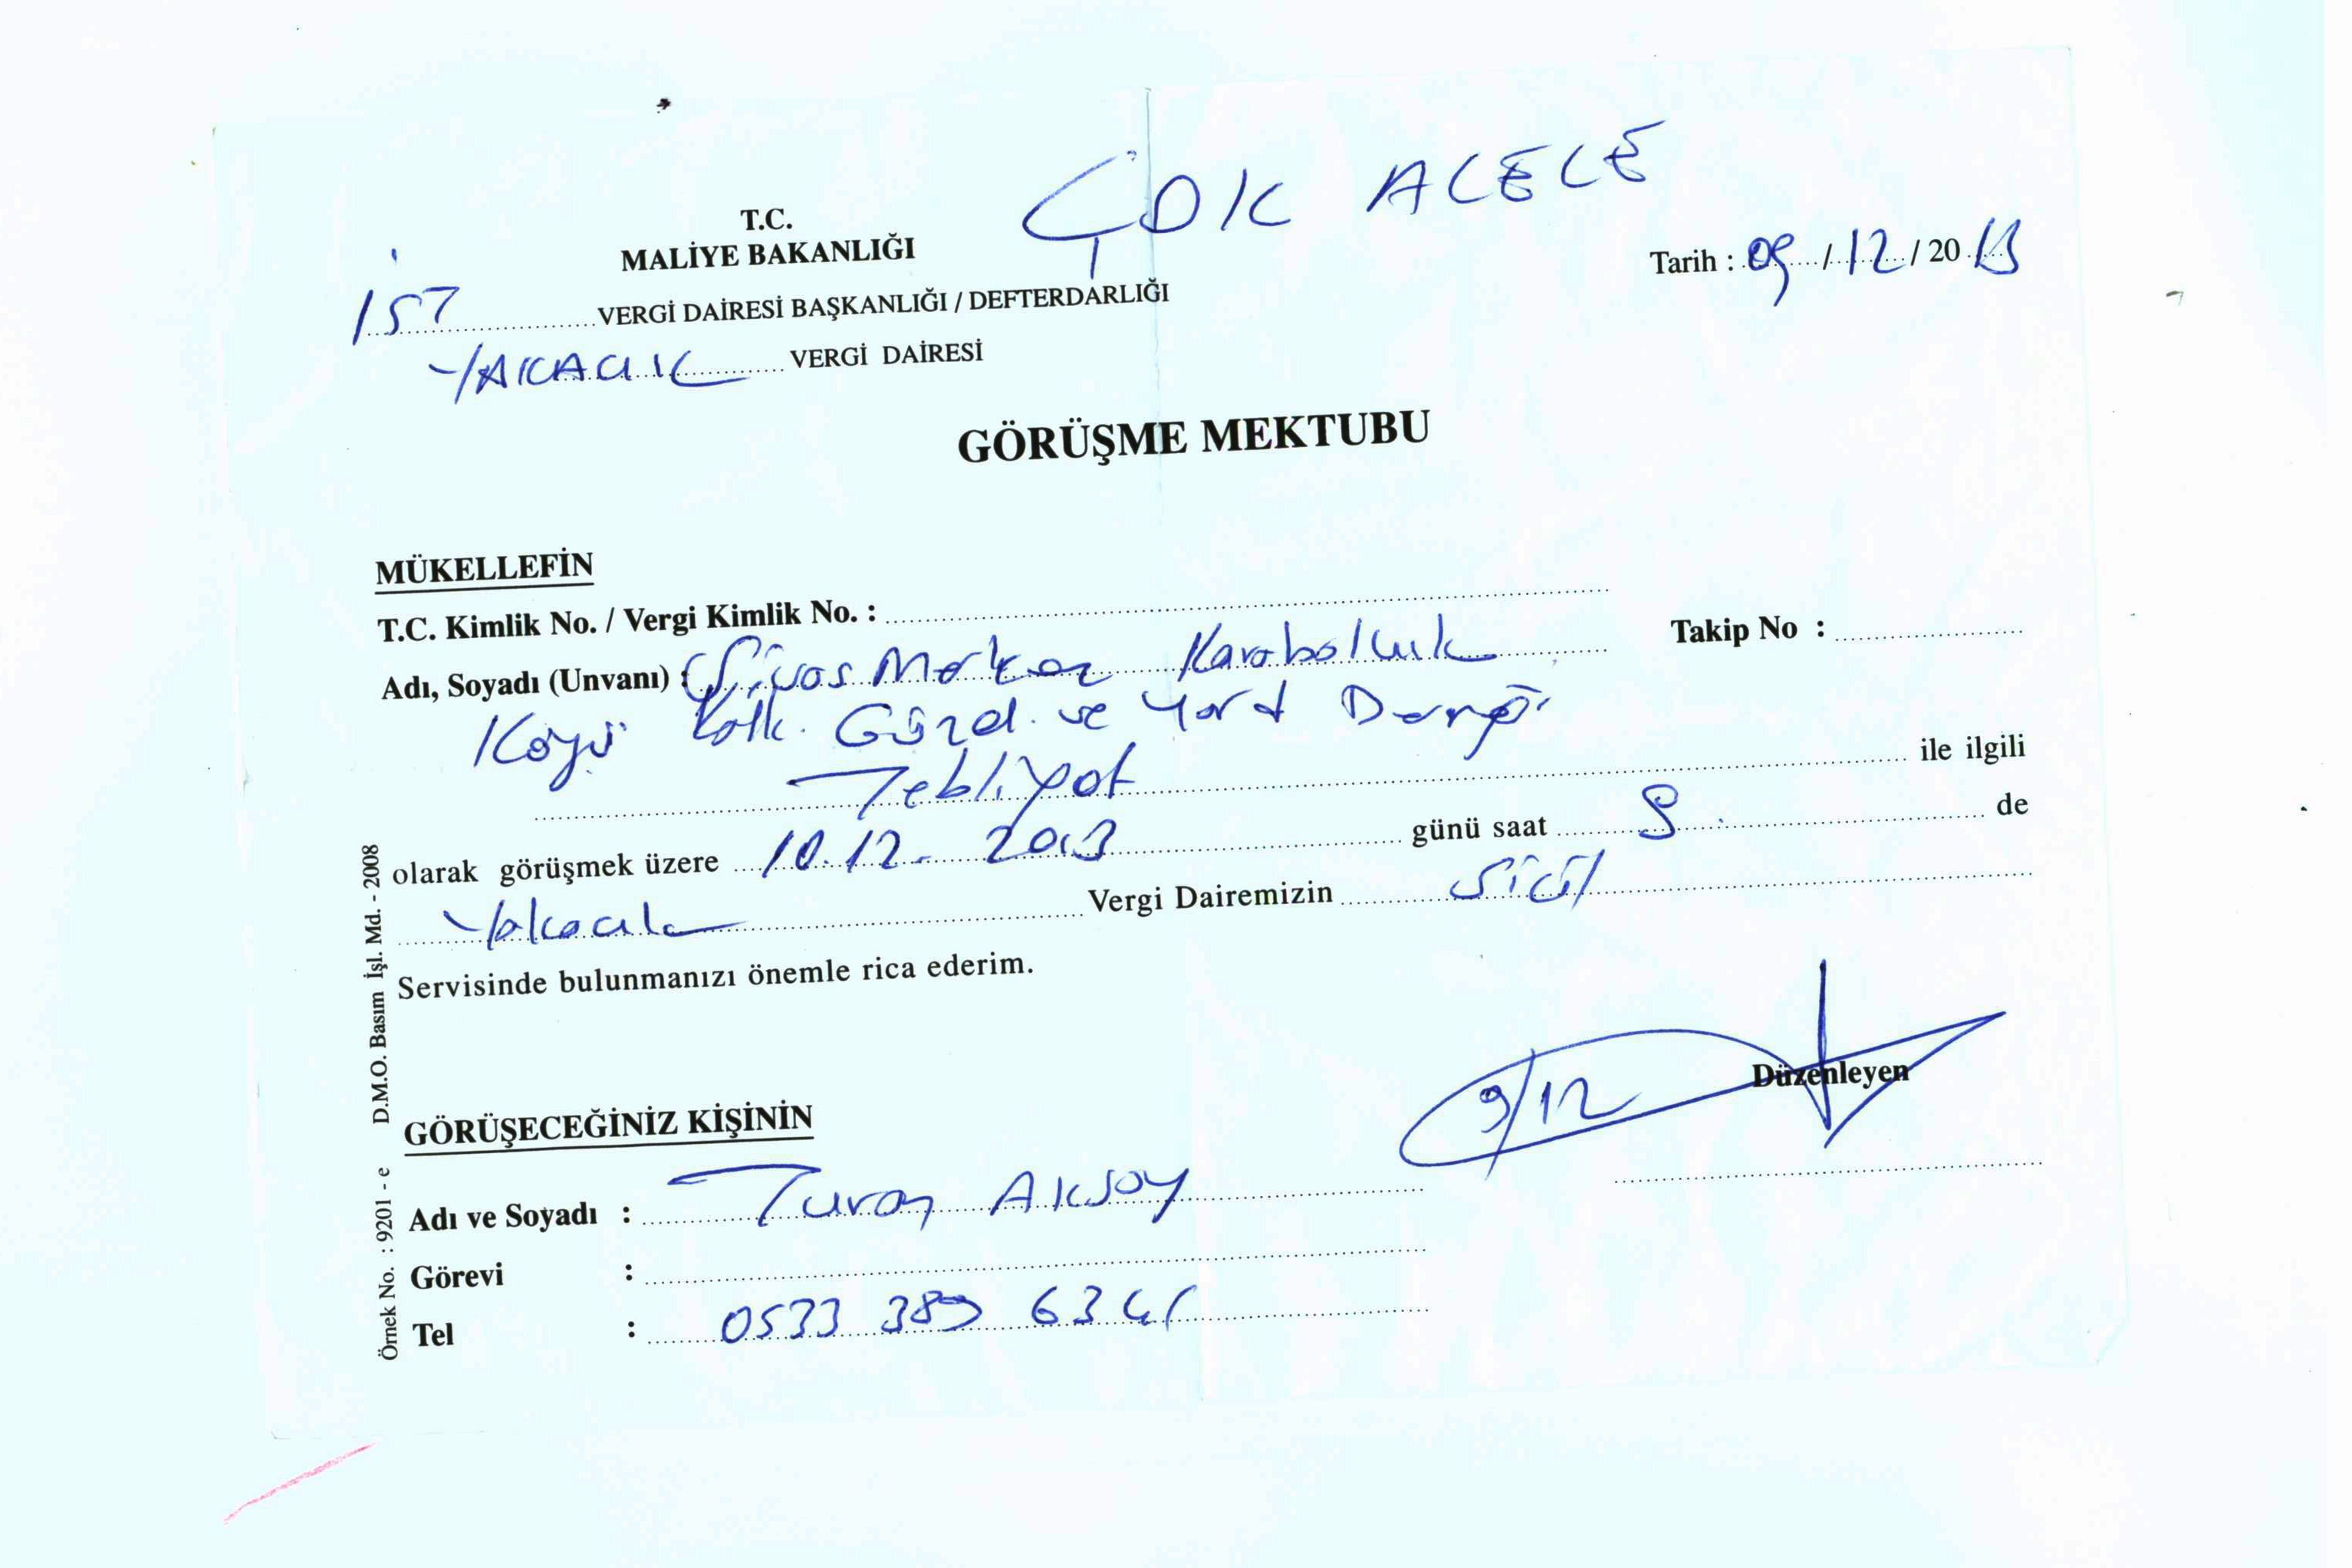 ÇOK ACELE
T.C.
MALİYE BAKANLIĞI
Tarih : 09 / 12 / 20 13
İST VERGİ DAİRESİ BAŞKANLIĞI / DEFTERDARLIĞI
YAKACIK VERGİ DAİRESİ
GÖRÜŞME MEKTUBU
MÜKELLEFİN
T.C. Kimlik No. / Vergi Kimlik No. :
Takip No :
Adı, Soyadı (Unvanı) : Sivas Merkez Karabalçık
Köyü Kalk. Güzel. ve Yard Derneği
Tebligat ile ilgili
olarak görüşmek üzere 10.12.2013 günü saat 9 de
Yakacık Vergi Dairemizin Sicil
Servisinde bulunmanızı önemle rica ederim.
9/12
Düzenleyen
GÖRÜŞECEĞİNİZ KİŞİNİN
Adı ve Soyadı : Turan Aksoy
Görevi :
Tel : 0533 389 6341
Örnek No. : 9201 - e D.M.O. Basım İşl. Md. - 2008